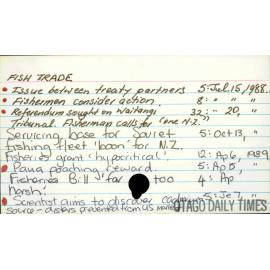 FISH TRADE
• Issue between treaty partners 5: Jul. 15, 1988.
• Fishermen consider action. 8: " " "
• Referendum sought on Waitangi 32: " 20, "
Tribunal. Fisherman calls for 'one N.Z.'
Servicing base for Soviet 5: Oct 13, "
fishing fleet 'boon' for N.Z.
Fisheries grant 'hypocritical'. 12: Ap 6, 1989
• Paua poaching reward. 5: Ap 15, "
Fisheries Bill 'far too 4: Ap
harsh'.
• Scientist aims to discover 5: Je 7, "
source - prevented from us
OTAGO DAILY TIMES